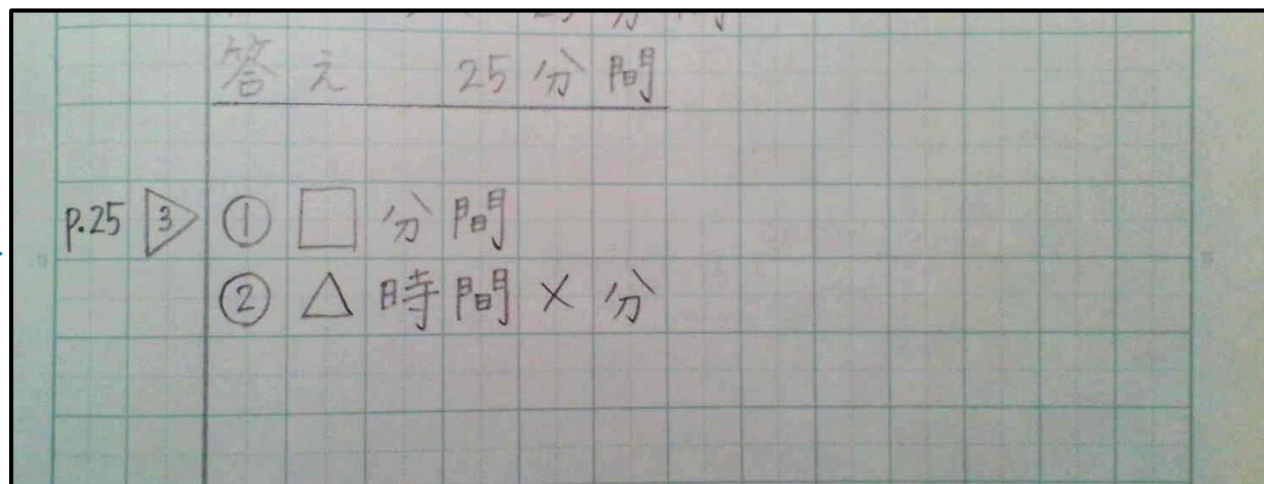 答え 25分間
p.25 3 ① □ 分間
② △ 時間 × 分